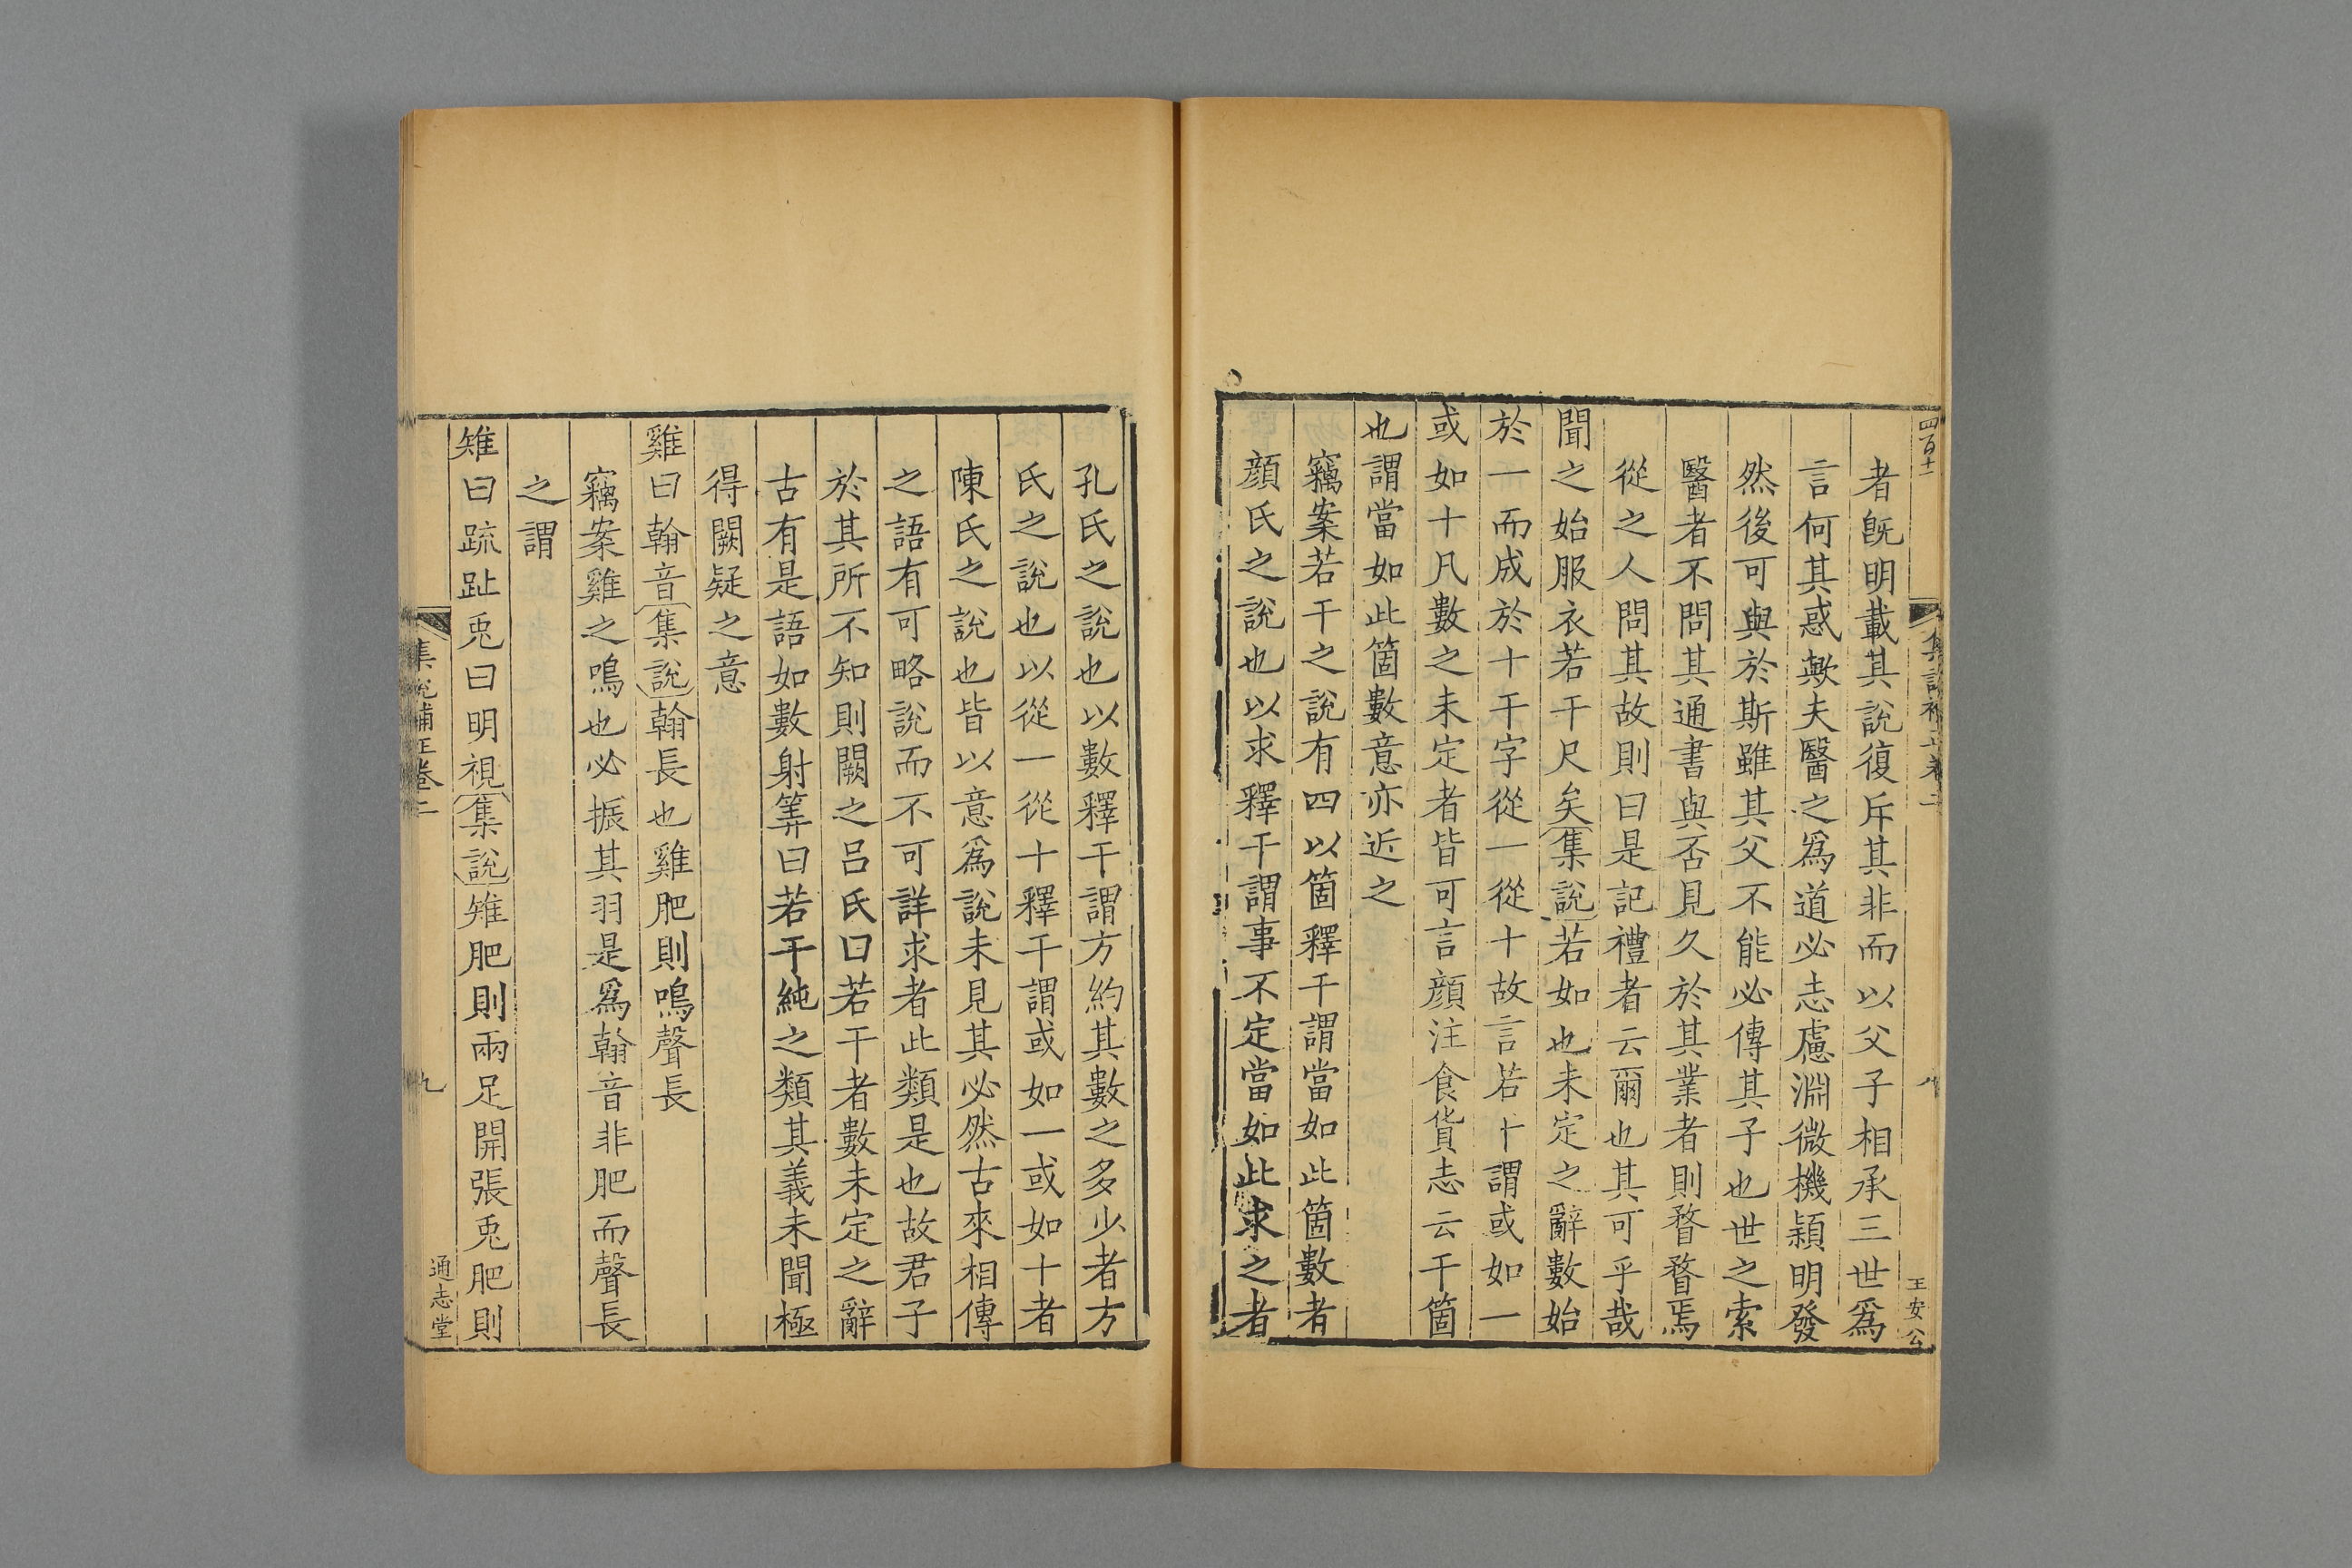 四百十
集說補正卷二
八
王安公
者旣明載其說復斥其非而以父子相承三世爲
言何其惑歟夫醫之爲道必志慮淵微機穎明發
然後可與於斯雖其父不能必傳其子也世之索
醫者不問其通書與否見久於其業者則瞀瞀焉
從之人問其故則曰是記禮者云爾也其可乎哉
聞之始服衣若干尺矣集說若如也未定之辭數始
於一而成於十干字從一從十故言若干謂或如一
或如十凡數之未定者皆可言顔注食貨志云干箇
也謂當如此箇數意亦近之
竊案若干之說有四以箇釋干謂當如此箇數者
顔氏之說也以求釋干謂事不定當如此求之者
孔氏之說也以數釋干謂方約其數之多少者方
氏之說也以從一從十釋干謂或如一或如十者
陳氏之說也皆以意爲說未見其必然古來相傳
之語有可略說而不可詳求者此類是也故君子
於其所不知則闕之呂氏曰若干者數未定之辭
古有是語如數射筭曰若干純之類其義未聞極
得闕疑之意
雞曰翰音集說翰長也雞肥則鳴聲長
竊案雞之鳴也必振其羽是爲翰音非肥而聲長
之謂
雉曰疏趾兎曰明視集說雉肥則兩足開張兎肥則
集說補正卷二
九
通志堂